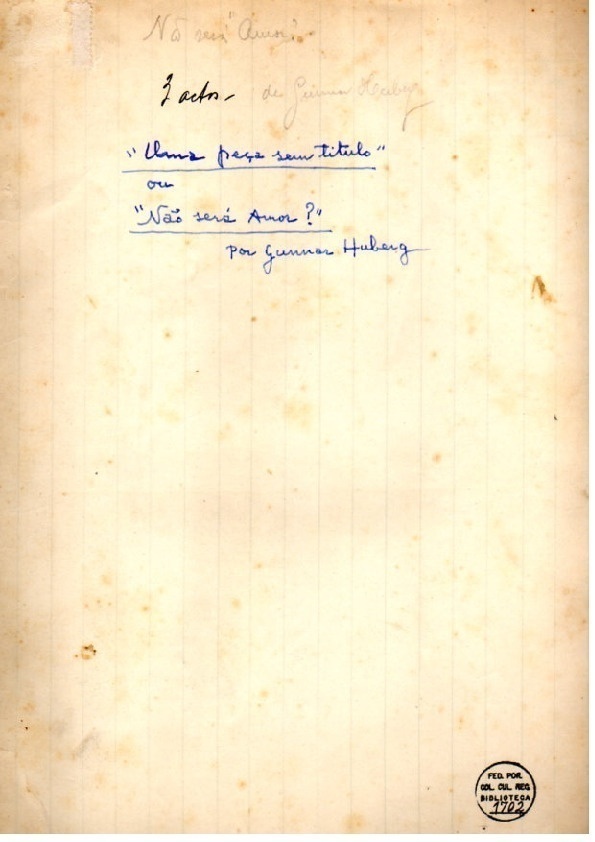 Não será Amor?
3 actos - de Gunnar Heiberg
"Uma peça sem titulo"
ou
"Não será Amor?"
por Gunnar Huberg
FED. POR.
COL. CUL. REG.
BIBLIOTECA
1702